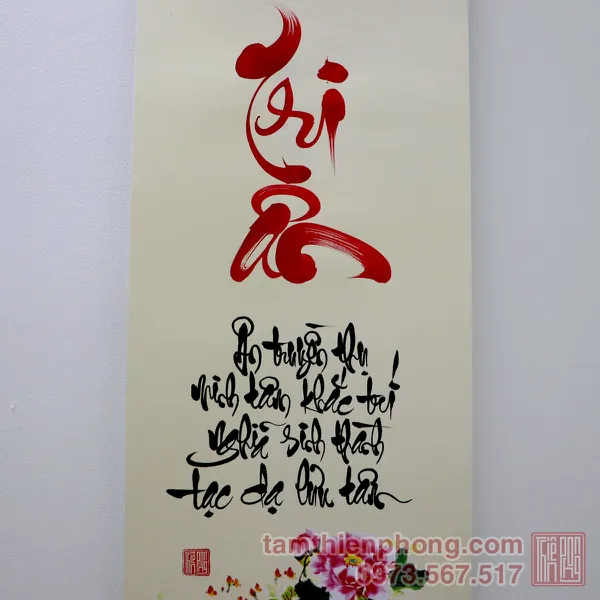 Tri
Ân
Ơn truyền thụ
minh tâm khắc trí
nghĩa sinh thành
tạc dạ lưu tâm
tamthienphong.com
0973.567.517